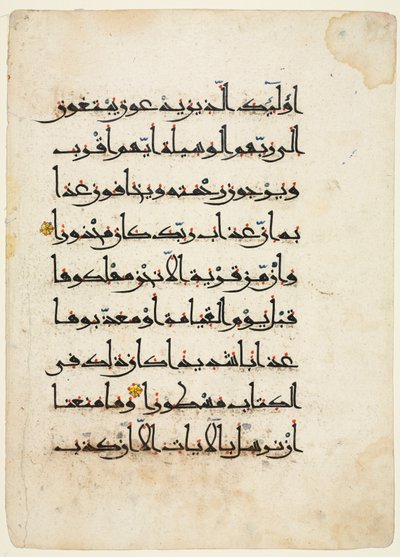 أولئك الذين يدعون يبتغون
إلى ربهم الوسيلة أيهم أقرب
ويرجون رحمته ويخافون عذا
به إن عذاب ربك كان محذورا
وإن من قرية إلا نحن مهلكوها
قبل يوم القيامة أو معذبوها
عذابا شديدا كان ذلك في
الكتاب مسطورا وما منعنا
أن نرسل بالآيات إلا أن كذب